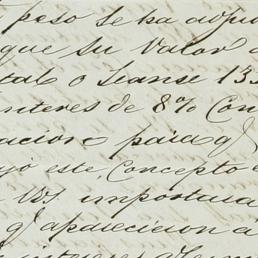 peso se ha adju
que su valor
tal o Seanse 13
interes de 8% Con
para q
este Concepto
VS. importara
q aparecieron a